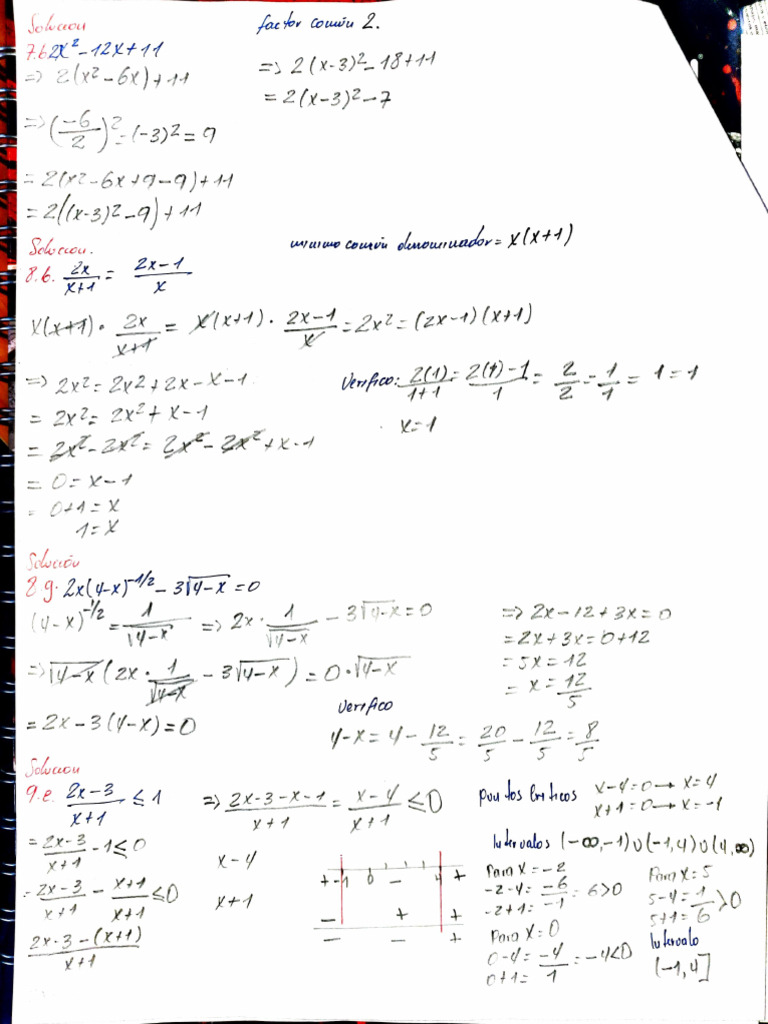 Solucion
factor común 2.
7.b 2x² - 12x + 11
=> 2(x² - 6x) + 11
=> (-6/2)² = (-3)² = 9
= 2(x² - 6x + 9 - 9) + 11
= 2((x-3)² - 9) + 11
=> 2(x-3)² - 18 + 11
= 2(x-3)² - 7
Solucion.
8.b. 2x/(x+1) = (2x-1)/x
minimo común denominador = x(x+1)
x(x+1) · 2x/(x+1) = x(x+1) · (2x-1)/x = 2x² = (2x-1)(x+1)
=> 2x² = 2x² + 2x - x - 1
= 2x² = 2x² + x - 1
= 2x² - 2x² = 2x² - 2x² + x - 1
= 0 = x - 1
= 0+1 = x
1 = x
Verifico: 2(1)/(1+1) = (2(1)-1)/1 = 2/2 = 1/1 = 1 = 1
x = 1
Solución
8 g. 2x(4-x)^(-1/2) - 3√(4-x) = 0
(4-x)^(-1/2) = 1/√(4-x) => 2x · 1/√(4-x) - 3√(4-x) = 0
=> √(4-x) (2x · 1/√(4-x) - 3√(4-x)) = 0 · √(4-x)
= 2x - 3(4-x) = 0
=> 2x - 12 + 3x = 0
= 2x + 3x = 0 + 12
= 5x = 12
= x = 12/5
Verifico
4-x = 4 - 12/5 = 20/5 - 12/5 = 8/5
Solucion
9.e. (2x-3)/(x+1) ≤ 1
= (2x-3)/(x+1) - 1 ≤ 0
= (2x-3)/(x+1) - (x+1)/(x+1) ≤ 0
(2x-3-(x+1))/(x+1)
=> (2x-3-x-1)/(x+1) = (x-4)/(x+1) ≤ 0
x-4
x+1
+ -1 0 - 4 +
- + +
- - +
puntos Criticos x-4=0 → x=4
x+1=0 → x=-1
Intervalos (-∞,-1) ∪ (-1,4) ∪ (4,∞)
Para x = -2
-2-4 = -6
-2+1 = -1 = 6 > 0
Para x = 0
0-4 = -4
0+1 = 1 = -4 < 0
Para x = 5
5-4 = 1
5+1 = 6 > 0
Intervalo
(-1,4]